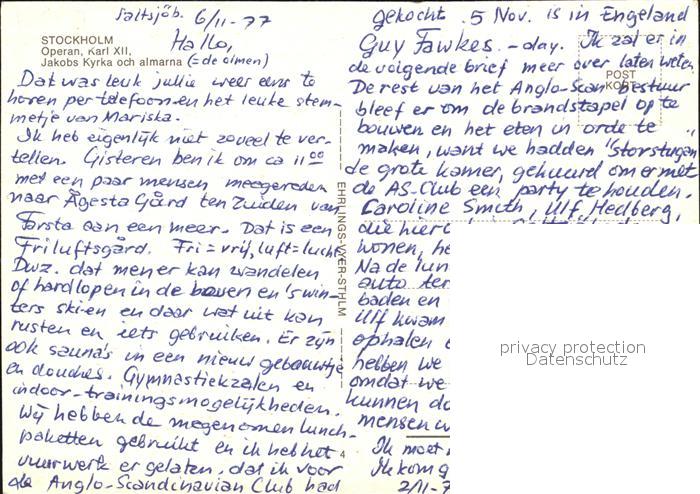 Saltsjöb. 6/11-77
STOCKHOLM
Operan, Karl XII,
Jakobs Kyrka och almarna (= de olmen)
Hallo,
Dat was leuk jullie weer eens te
horen per telefoon en het leuke stem-
metje van Mariska.
Ik heb eigenlijk niet zoveel te ver-
tellen. Gisteren ben ik om ca 11 00
met een paar mensen meegereden
naar Ågesta Gård ten Zuiden van
Farsta aan een meer. Dat is een
Friluftsgård. Fri = vrij, luft = lucht
Dwz. dat men er kan wandelen
of hardlopen in de boven en 's win-
ters ski-en en daar wat uit kan
rusten en iets gebruiken. Er zijn
ook sauna's in een nieuw gebouwtje
en douches. Gymnastiekzalen en
indoor-trainingsmogelijkheden.
Wij hebben de meegenomen lunch-
paketten gebruikt en ik heb het
vuurwerk er gelaten, dat ik voor
de Anglo-Scandinavian Club had
EHRLINGS-LYER-STHLM
4
gekocht. 5 Nov. is in Engeland
Guy Fawkes.-day. Ik zal er in
de volgende brief meer over laten weten
POST
KORT
De rest van het Anglo-Scan bestuur
bleef er om de brandstapel op te
bouwen en het eten in orde te
maken, want we hadden "Storstugan"
de grote kamer, gehuurd om er met
de AS-Club een party te houden.
Caroline Smith, Ulf Hedberg,
die hier
wonen, he
Na de lun
auto ter
baden en
Ulf kwam
ophalen
hebben we
omdat we
kunnen do
mensen w
Ik moet
Ik kom g
2/11-7
privacy protection
Datenschutz